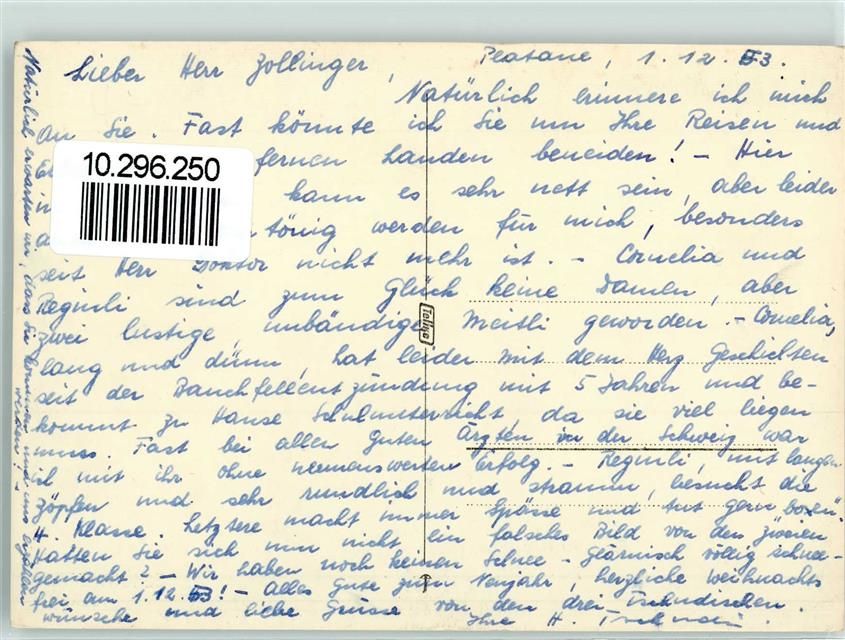 Platane, 1.12.53.
Lieber Herr Zollinger,
Natürlich erinnere ich mich
an Sie. Fast könnte ich Sie um Ihre Reisen und
fernen Landen beneiden! – Hier
kann es sehr nett sein, aber leider
tönig werden für mich, besonders
seit Herr Doktor nicht mehr ist. – Cornelia und
Reguli sind zum Glück keine Damen, aber
zwei lustige, unbändige Meitli geworden. – Cornelia,
lang und dünn, hat leider mit dem Herz Geschichten
seit der Bauchfellentzündung mit 5 Jahren und be-
kommt zu Hause Schulunterricht, da sie viel liegen
muss. Fast bei allen guten Ärzten in der Schweiz war
ich mit ihr ohne nennenswerten Erfolg. – Reguli, mit langen
Zöpfen und sehr rundlich und stramm, besucht die
4. Klasse. Letztere macht immer Spässe und tut gern "boxen".
Hatten Sie sich nun nicht ein falsches Bild von den zweien
gemacht? – Wir haben noch keinen Schnee – Glärnisch völlig schnee-
frei am 1.12.53! – Alles Gute zum Neujahr, herzliche Weihnachts
wünsche und liebe Grüsse von den drei Tschudischen.
Ihre H. Tschudi.
Natürlich erwarten wir, dass Sie kommen und uns erzählen
werden!
10.296.250